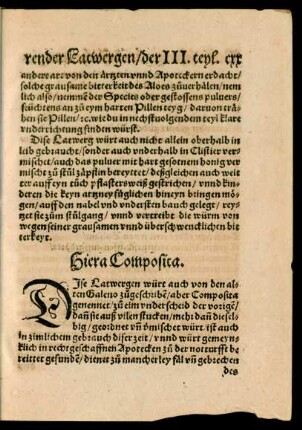 render Latwergen/der III. teyl. cxx
andere art von den ärtzten vnnd Apoteckern erdacht/
solche grausame bitterkeit des Aloes zůuerhälen/nem
lich also/nemmē der Species oder gestossens puluers/
feüchtens an zů eym harten Pillen teyg/ darvon trå-
hen sie Pillen/ꝛc. wie du in nechstuolgendem teyl klare
vnderrichtung finden würst.
Dise Latwerg würt auch nicht allein oberhalb in
leib gebraucht/sonder auch vnderhalb in Clistier ver
mischet/auch das puluer mit hart gesotnem honig ver
mischt zů stůl zäpflin bereyttet/deßgleichen auch weit
ter auff eyn tůch pflasters weiß gestrichen/ vnnd kin-
deren die keyn artzney füglichen bineyn bringen mö-
gen/auff den nabel vnd vndersten bauch gelegt/rey-
tzet sie zům stůlgang/ vnnd vertreibt die würm von
wegen seiner grausamen vnnd überschwencklichen bit
terkeyt.
Hiera Composita.
DIse Latwergen würt auch von den al-
ten Galeno zůgeschribē/aber Composita
genennet/zů eim vnderscheid der vorigē/
dañ sie auß vilen stucken/meh dañ die sel-
big/geordnet vñ vermischet würt. ist auch
in zimlichem gebrauch diser zeit/vnnd würt gemeyn-
klich in rechtgeschaffnen Apotecken zů der notturfft be
reittet gefundē/dienet zů mancherley fäl vñ gebrechen
des